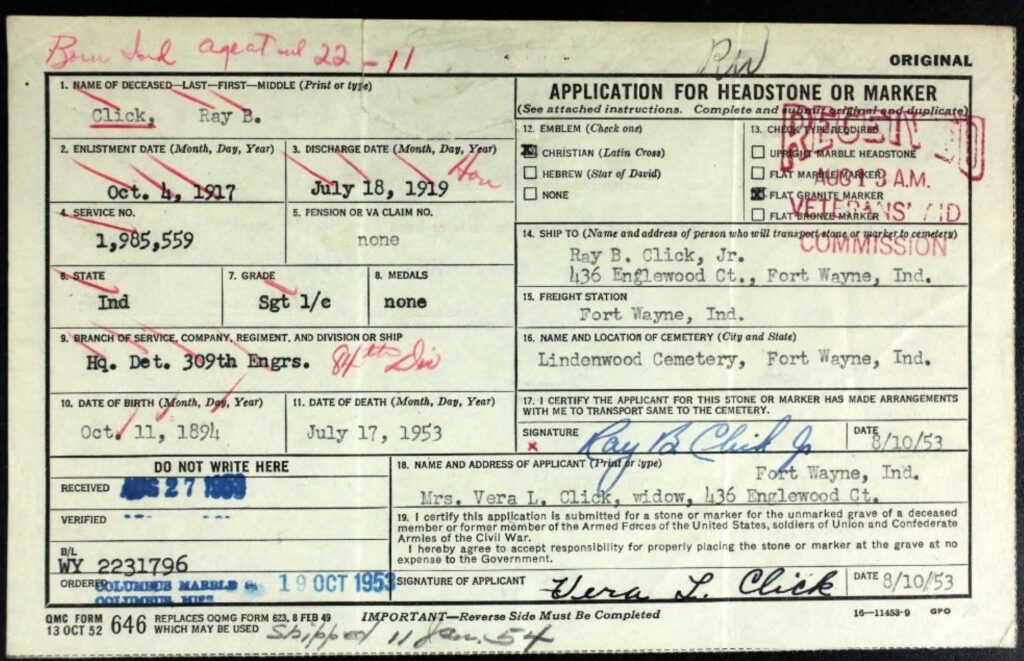 Born Ind age at enl 22 - 11
RW
ORIGINAL
1. NAME OF DECEASED—LAST—FIRST—MIDDLE (Print or type)
Click, Ray B.
2. ENLISTMENT DATE (Month, Day, Year)
Oct. 4, 1917
3. DISCHARGE DATE (Month, Day, Year)
July 18, 1919
Hon
4. SERVICE NO.
1,985,559
5. PENSION OR VA CLAIM NO.
none
6. STATE
Ind
7. GRADE
Sgt 1/c
8. MEDALS
none
9. BRANCH OF SERVICE, COMPANY, REGIMENT, AND DIVISION OR SHIP
Hq. Det. 309th Engrs. 84th Div
10. DATE OF BIRTH (Month, Day, Year)
Oct. 11, 1894
11. DATE OF DEATH (Month, Day, Year)
July 17, 1953
DO NOT WRITE HERE
RECEIVED AUG 27 1953
VERIFIED
B/L
WY 2231796
ORDERED COLUMBUS MARBLE
COLUMBUS, MISS
19 OCT 1953
APPLICATION FOR HEADSTONE OR MARKER
(See attached instructions. Complete and submit original and duplicate)
12. EMBLEM (Check one)
CHRISTIAN (Latin Cross)
HEBREW (Star of David)
NONE
13. CHECK TYPE REQUIRED
UPRIGHT MARBLE HEADSTONE
FLAT MARBLE MARKER
FLAT GRANITE MARKER
FLAT BRONZE MARKER
RECEIVED
AUG 13 A.M.
VETERANS' AID
COMMISSION
14. SHIP TO (Name and address of person who will transport stone or marker to cemetery)
Ray B. Click, Jr.
436 Englewood Ct., Fort Wayne, Ind.
15. FREIGHT STATION
Fort Wayne, Ind.
16. NAME AND LOCATION OF CEMETERY (City and State)
Lindenwood Cemetery, Fort Wayne, Ind.
17. I CERTIFY THE APPLICANT FOR THIS STONE OR MARKER HAS MADE ARRANGEMENTS
WITH ME TO TRANSPORT SAME TO THE CEMETERY.
SIGNATURE x Ray B. Click Jr DATE 8/10/53
18. NAME AND ADDRESS OF APPLICANT (Print or type) Fort Wayne, Ind.
Mrs. Vera L. Click, widow, 436 Englewood Ct.
19. I certify this application is submitted for a stone or marker for the unmarked grave of a deceased
member or former member of the Armed Forces of the United States, soldiers of Union and Confederate
Armies of the Civil War.
I hereby agree to accept responsibility for properly placing the stone or marker at the grave at no
expense to the Government.
SIGNATURE OF APPLICANT Vera L. Click DATE 8/10/53
QMC FORM
13 OCT 52 646 REPLACES OQMG FORM 623, 8 FEB 49
WHICH MAY BE USED
IMPORTANT—Reverse Side Must Be Completed
16—11453-9 GPO
Shipped 11 Jan. 54